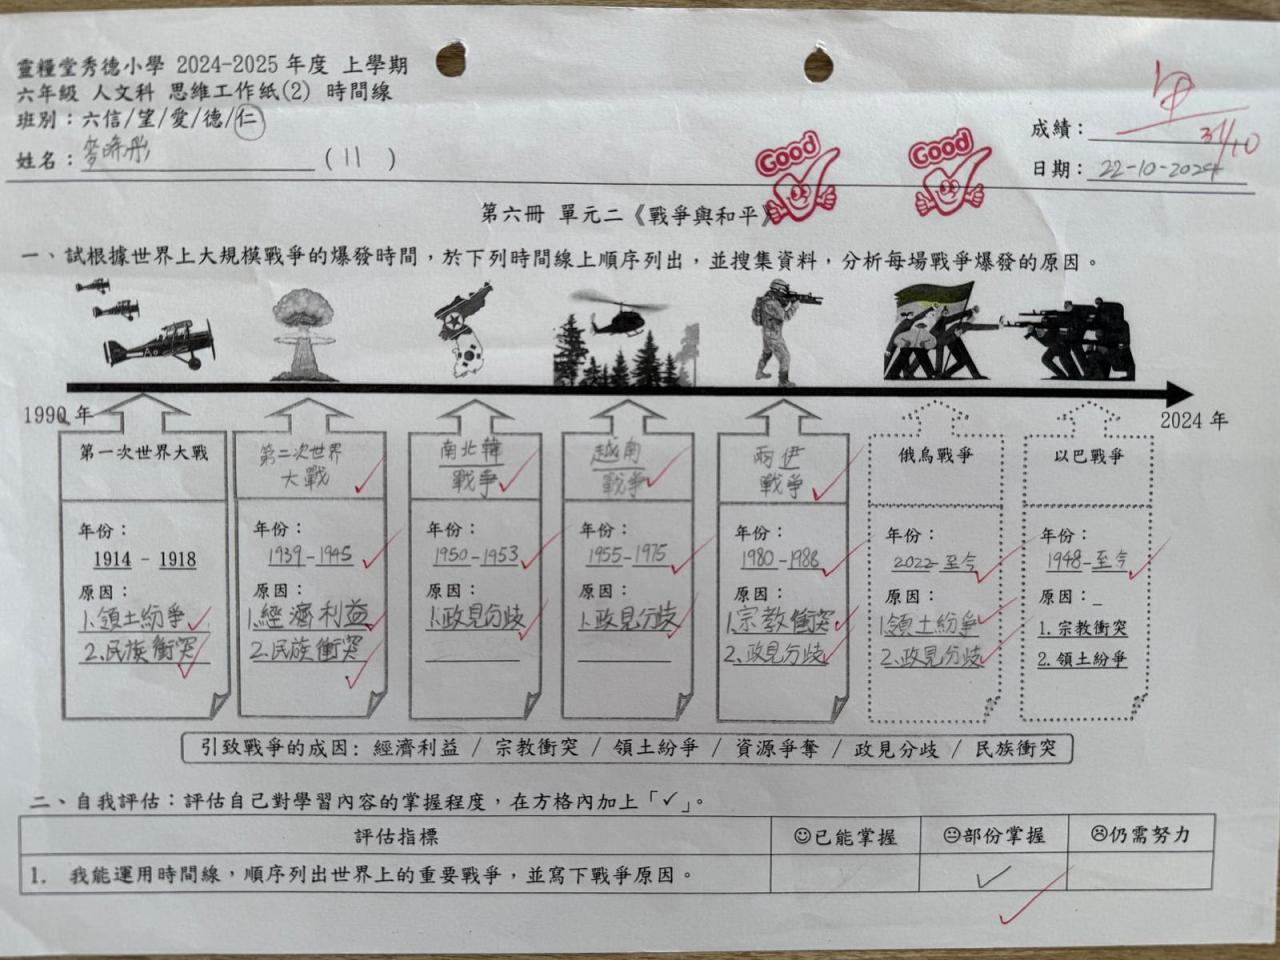 靈糧堂秀德小學 2024-2025 年度 上學期
六年級 人文科 思維工作紙(2) 時間線
班別：六信/望/愛/德/仁
姓名：麥希彤 (11)
成績：甲
31/10
日期：22-10-2024
Good
Good
第六冊 單元二《戰爭與和平》
一、試根據世界上大規模戰爭的爆發時間，於下列時間線上順序列出，並搜集資料，分析每場戰爭爆發的原因。
1990 年
2024 年
第一次世界大戰
年份：
1914 - 1918
原因：
1.領土紛爭
2.民族衝突
第二次世界
大戰
年份：
1939-1945
原因：
1.經濟利益
2.民族衝突
南北韓
戰爭
年份：
1950-1953
原因：
1.政見分歧
越南
戰爭
年份：
1955-1975
原因：
1.政見分歧
兩伊
戰爭
年份：
1980-1988
原因：
1.宗教衝突
2.政見分歧
俄烏戰爭
年份：
2022-至今
原因：
1.領土紛爭
2.政見分歧
以巴戰爭
年份：
1948-至今
原因：
1. 宗教衝突
2. 領土紛爭
引致戰爭的成因：經濟利益 / 宗教衝突 / 領土紛爭 / 資源爭奪 / 政見分歧 / 民族衝突
二、自我評估：評估自己對學習內容的掌握程度，在方格內加上「✓」。
評估指標 ☺已能掌握 😐部份掌握 ☹仍需努力
1. 我能運用時間線，順序列出世界上的重要戰爭，並寫下戰爭原因。 ✓